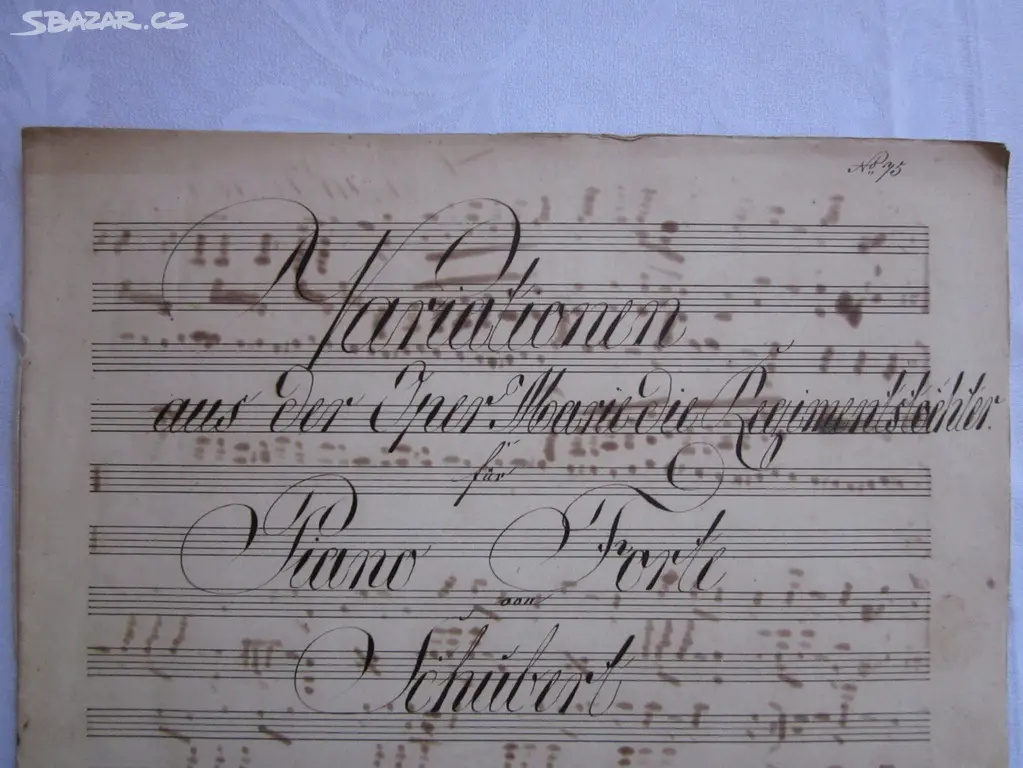 SBAZAR.CZ
No 75
Variationen
aus der Oper Marie die Regimentstochter.
für
Piano Forte
von
Schubert